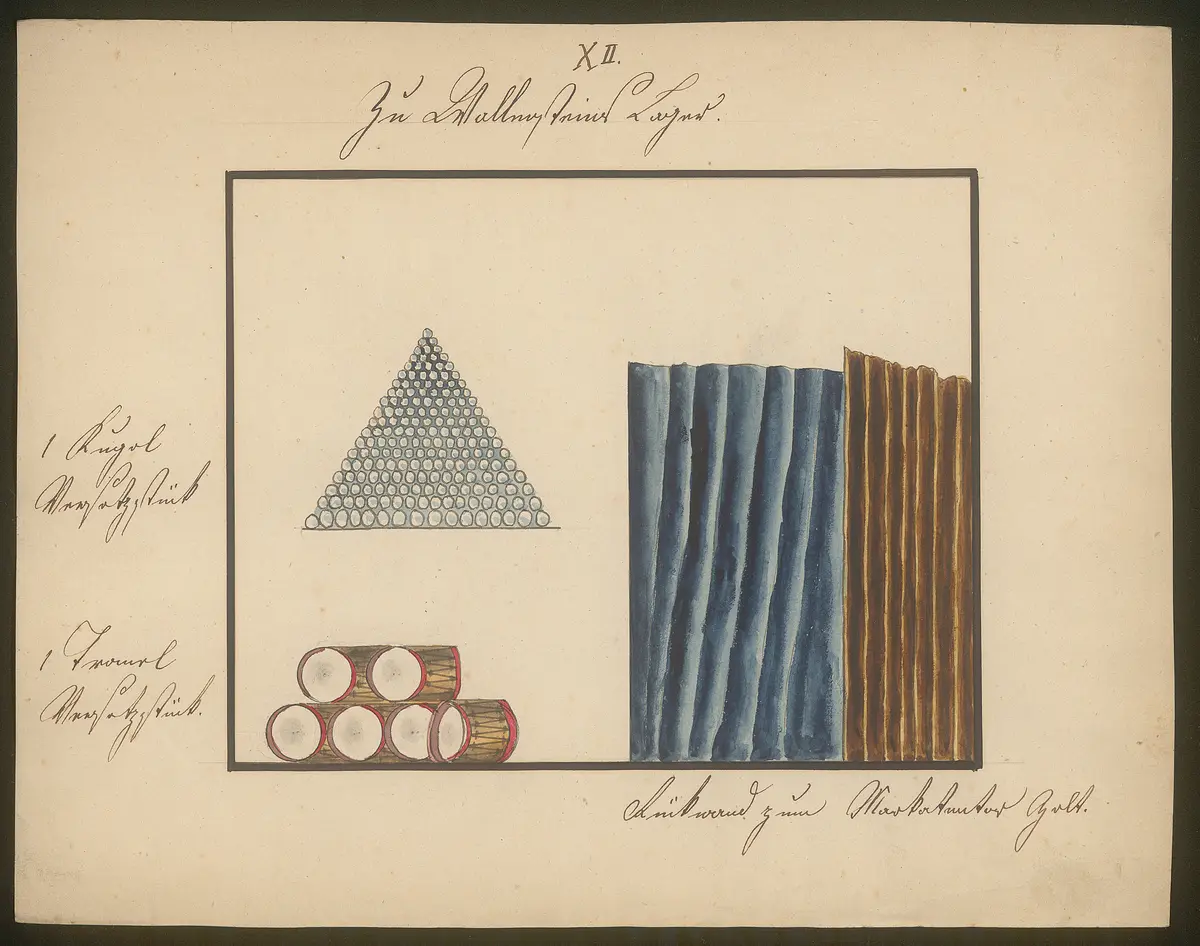 XII.
Zu Wallensteins Lager.
1 Kugel
Versatzstück
1 Tromel
Versatzstück.
Rückwand zum Markatentor Zelt.